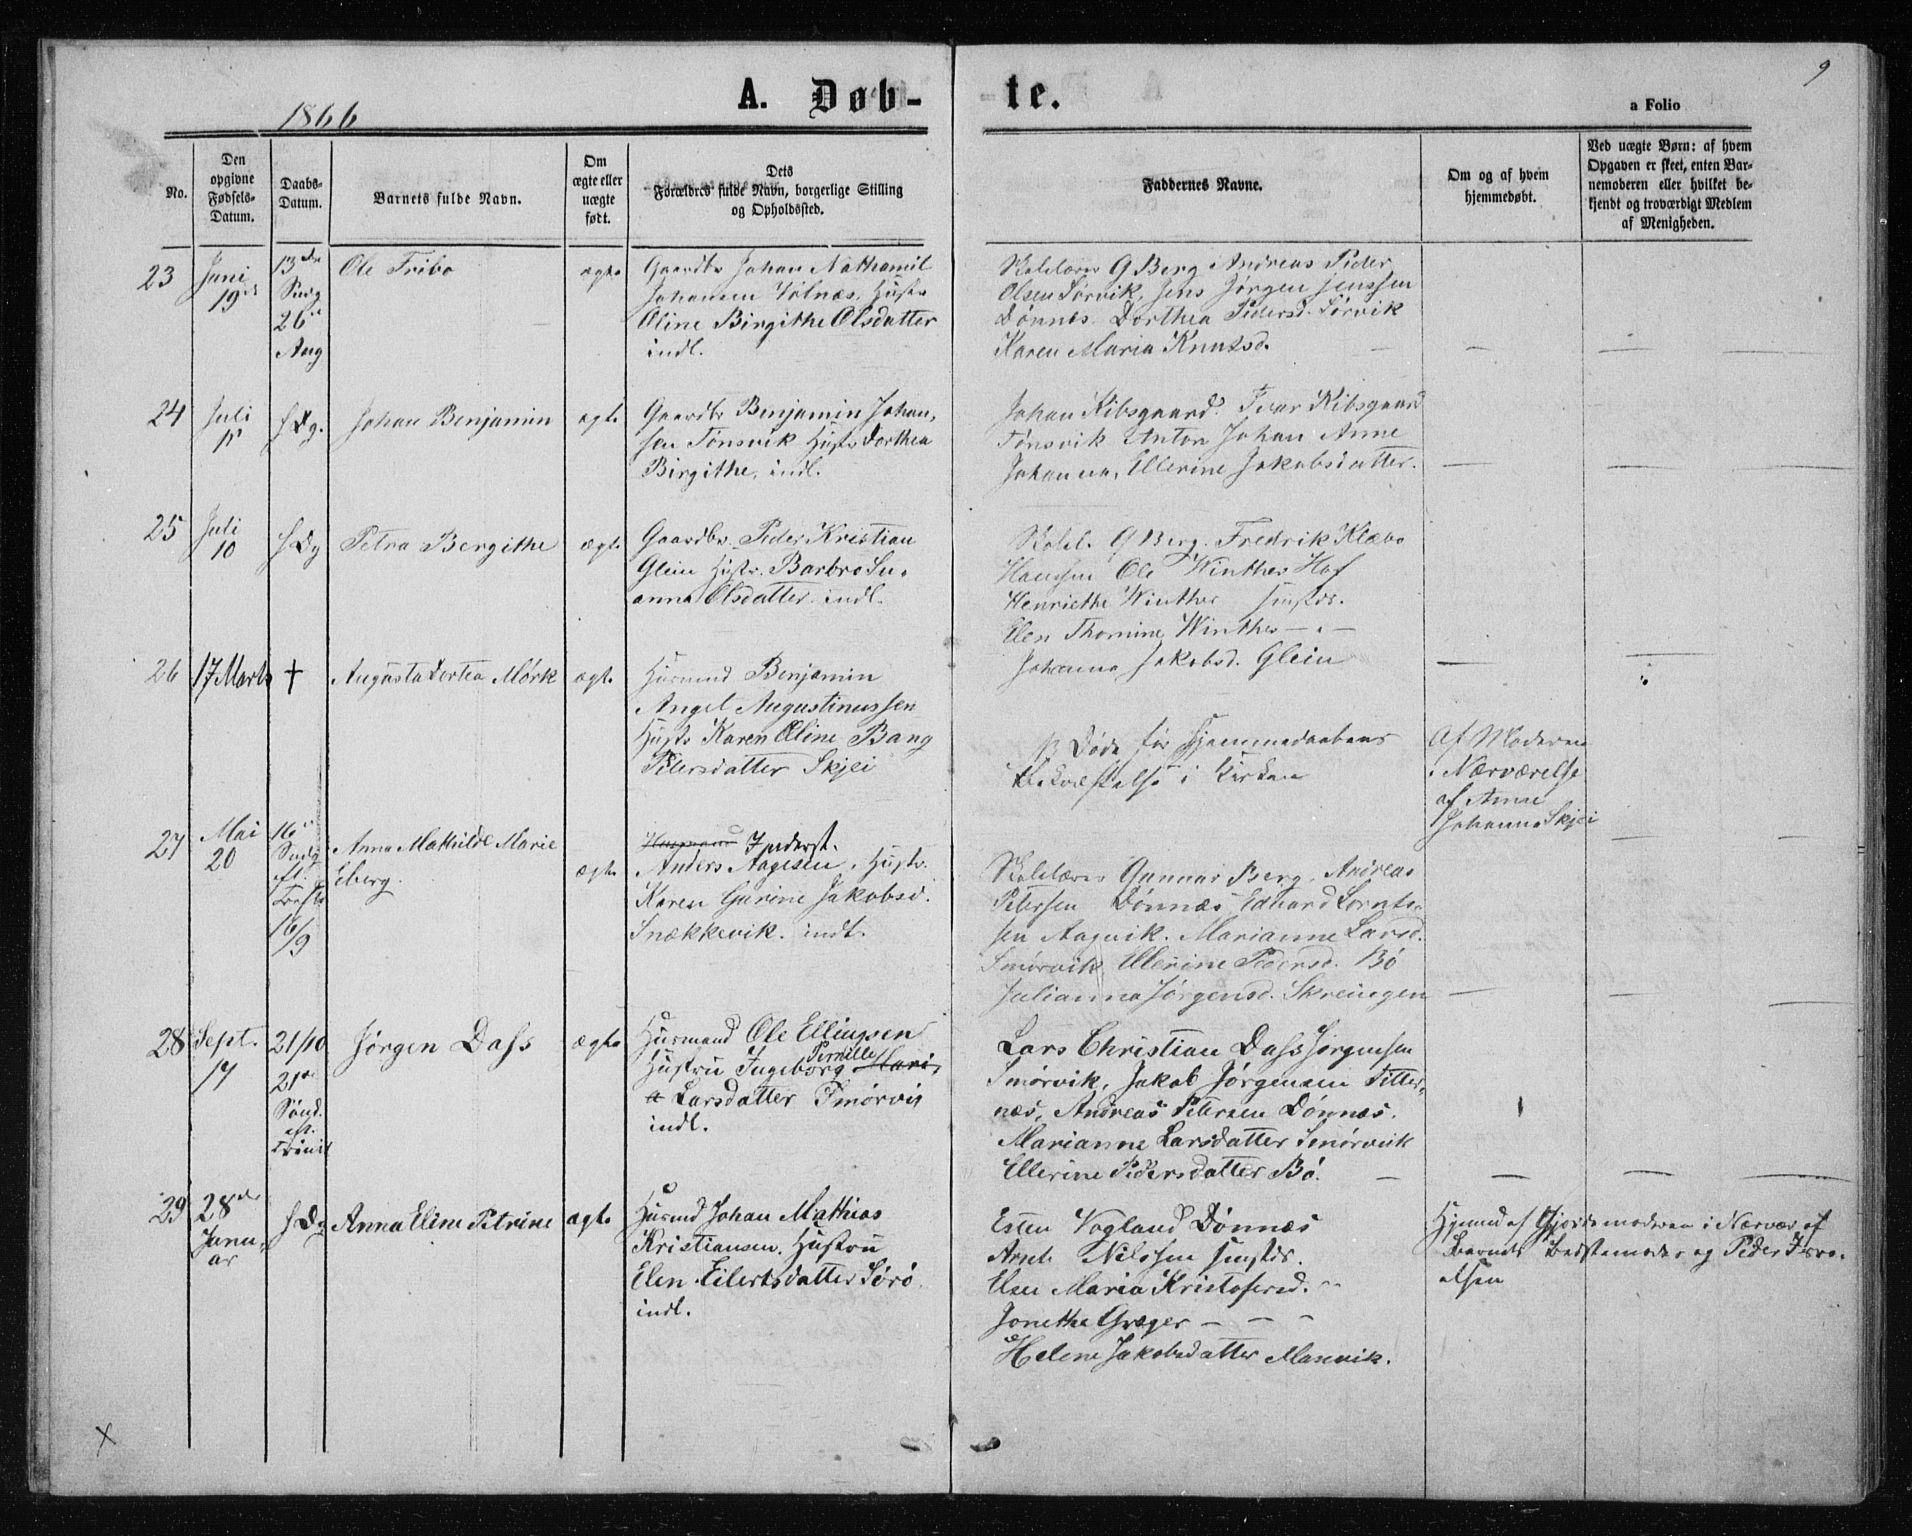 9
A. Døb-
te.
a Folio
1866
No.
Den
opgivne
Fødsels-
Datum.
Daabs-
Datum.
Barnets fulde Navn.
Om
ægte eller
uægte
født.
Dets
Forældres fulde Navn, borgerlige Stilling
og Opholdssted.
Faddernes Navne.
Om og af hvem
hjemmedøbt.
Ved uægte Børn: af hvem
Opgaven er skeet, enten Bar-
nemoderen eller hvilket be-
kjendt og troværdigt Medlem
af Menigheden.
23
Juni
19de
13de
Sndg
26de
Aug
Ole Tribo
ægte
Gaardbr Johan Nathanil
Johansen Hustr
Oline Birgithe Olsdatter
indl.
Skolelærer G Berg Andreas Peder
Olsen Sørvik, Jens Jørgen Jenssen
Dønnes. Dorthea Pedersd. Sørvik
Karen Maria Knutsd.
24
Juli
S Dg.
Johan Benjamin
ægte
Gaardbr Benjamin Johan,
sen Tønsvik Hustr Dorthea
Birgithe, indl.
Johan Kibsgaard. Ivar Kibsgaard
Tønsvik Anton Johan Anne
Johanna, Ellerine Jakobsdatter.
25
Juli
10
S Dg
Petra Bergithe
ægte
Gaardbr. Peder Kristian
Glein Hustr. Barbro Su,
anna Olsdatter. indl.
Skolel. G Berg. Fredrik Klæbo
Hansen Ole Winther Hof
Henriethe Winther smstds.
Elen Thomine Winther - " -
Johanna Jakobsd. Glein
26
17 Marts
†
Augusta Dortea Mørk
ægte
Husmnd Benjamin
Angel Augustinussen
Hustr Karen Oline Bang
Petersdatter Skjei
Døde før Hjemmedaabens
Bekræftelse i Kirken
Af Moderen
i Nærværelse
af Anne
Johanna Skjei
27
Mai
20
16de
Sndg
eft.
Trefts
16/9
Anna Mathilde Marie
Eberg.
ægte
Husmand Inderst.
Anders Aagesen, Hustr.
Karen Gurine Jakobsd.
Snækkevik. indl.
Skolelærer Gunnar Berg, Andreas
Petersen Dønnæs Edvard Lornts,
sen Aagvik. Marianne Larsd.
Smørvik Ellerine Pedersd. Bø
Julianna Jørgensd. Skreingen
28
Sept.
17
21/10
21de
Sønd.
eft.
Trinit
Jørgen Dass
ægte
Husmand Ole Ellingsen
Hustru Ingeborg Pernille Mari,
a Larsdatter Smørvik
indl.
Lars Christian Dass Jørgensen
Smørvik, Jakob Jørgensen Titter,
næs, Andreas Petersen Dønnæs.
Marianne Larsdatter Smørvik
Ellerine Pedersdatter Bø.
29
28de
Janu,
ar
S Dg
Anna Eline Petrine
ægte
Husmd Johan Mathias
Kristiansen, Hustru
Elen Eilertsdatter Sørø
indl.
Esten Vogland Dønnæs
Arnt Nilssen smstds.
Else Maria Kristofersd. "
Jonetha Græger - - -
Helene Jakobsdatter Masevik.
Hjemd af Gjordemoderen i Nærvær af
Barnets Bedstemoder og Peder Isra,
elsen
X